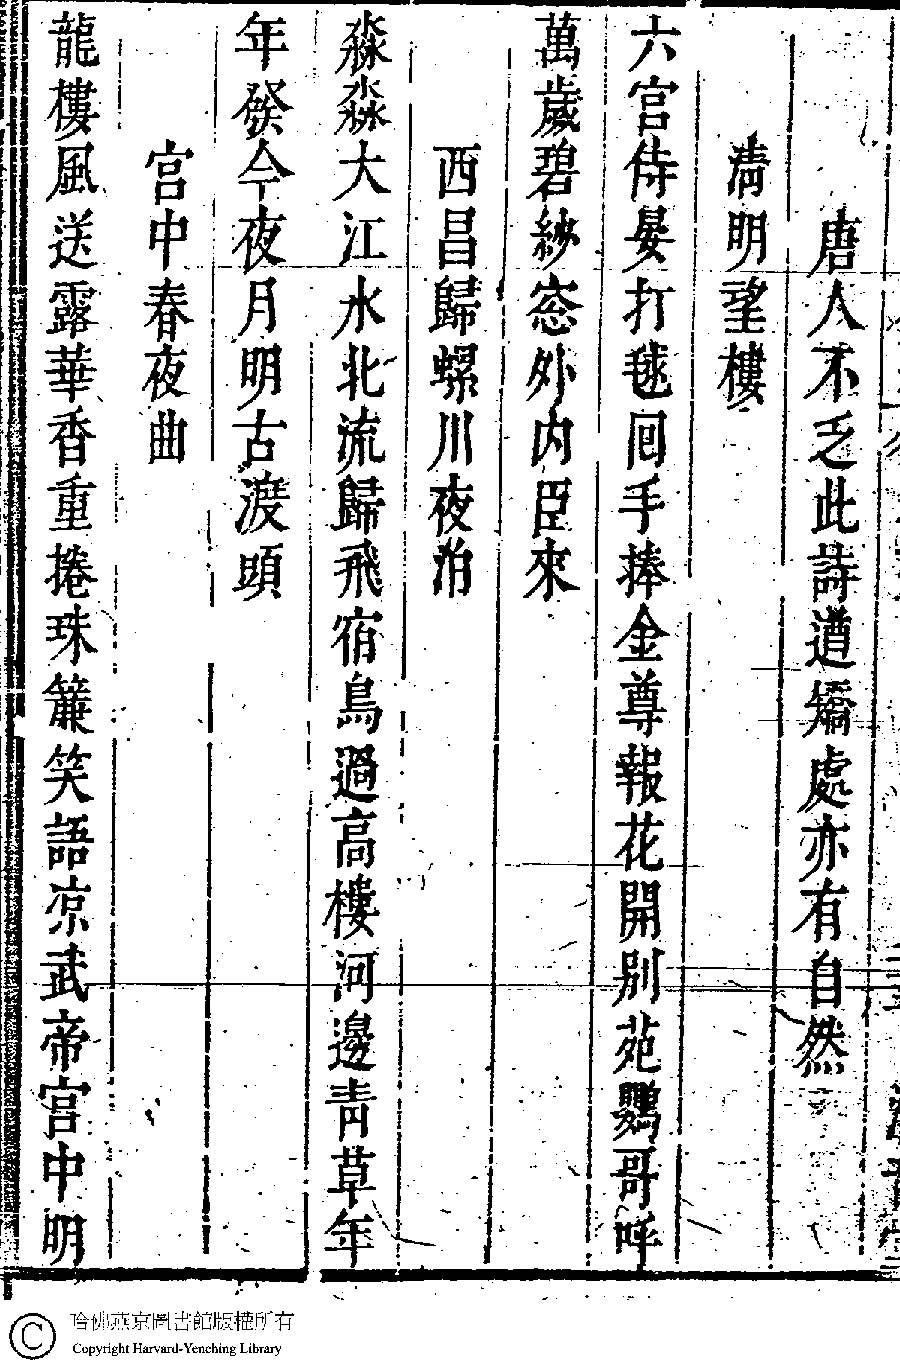 唐人不乏此詩遒矯處亦有自然
清明望樓
六宮侍宴打毬回手捧金尊報花開别苑鸚哥呼
萬歲碧紗窓外内臣來
西昌歸螺川夜泊
淼淼大江水北流歸飛宿鳥過高樓河邊青草年
年發今夜月明古渡頭
宮中春夜曲
龍樓風送露華香重捲珠簾笑語凉武帝宮中明
哈佛燕京圖書館版權所有
Copyright Harvard-Yenching Library